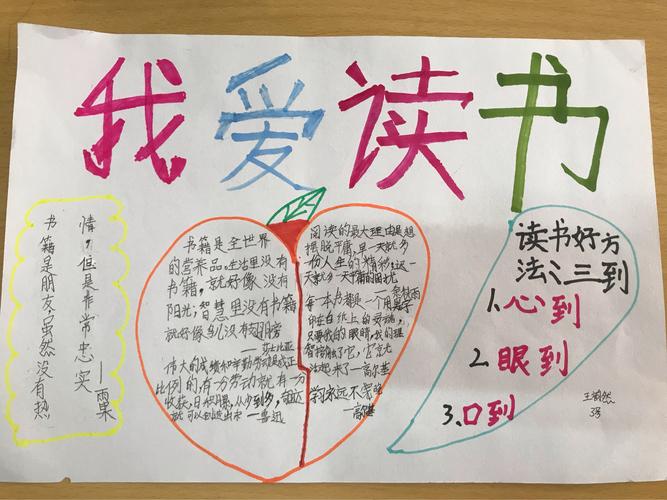 我爱读书
书籍是朋友,虽然没有热
情,但是非常忠实
——雨果
书籍是全世界
的营养品。生活里没有
书籍,就好像没有
阳光;智慧里没有书籍
就好像鸟儿没有翅膀
——莎士比亚
伟大的成绩和辛勤劳动是成正
比例的,有一分劳动就有一分
收获,日积月累,从少到多,奇迹
就可以创造出来 —鲁迅
阅读的最大理由是想
摆脱平庸,早一天就多
一份人生的精彩;迟一
天就多一天平庸的困扰
—余秋雨
每一本书都是一个用黑字
印在白纸上的灵魂,
只要我的眼睛,我的理
智接触了它,它就
活起来了—高尔基
学问永远不嫌晚
—高尔基
读书好方
法:三到
1.心到
2.眼到
3.口到